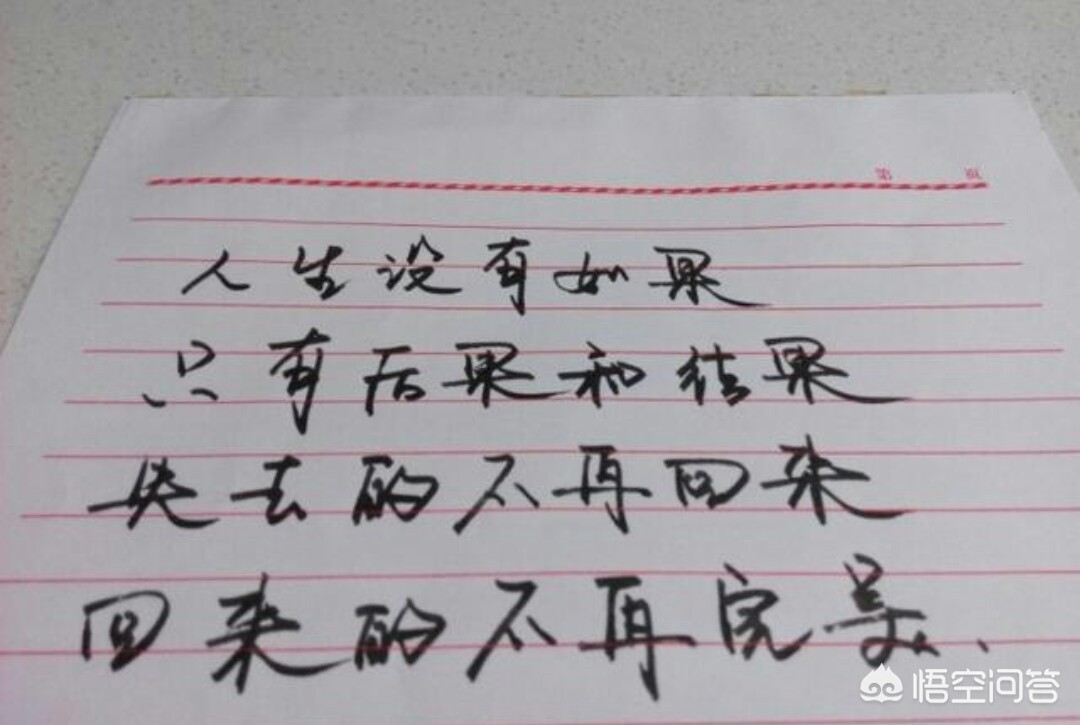 第 页
人生没有如果
只有后果和结果
失去的不再回来
回来的不再完美.
悟空问答